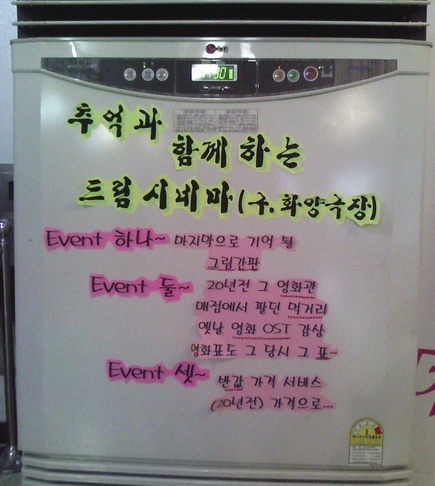 추억과
함께하는
드림시네마(구.화양극장)
Event 하나~ 마지막으로 기억 될
그림간판
Event 둘~ 20년전 그 영화관
매점에서 팔던 먹거리
옛날 영화 OST 감상
영화표도 그 당시 그 표~
Event 셋~ 반값 가격 서비스
(20년전) 가격으로...